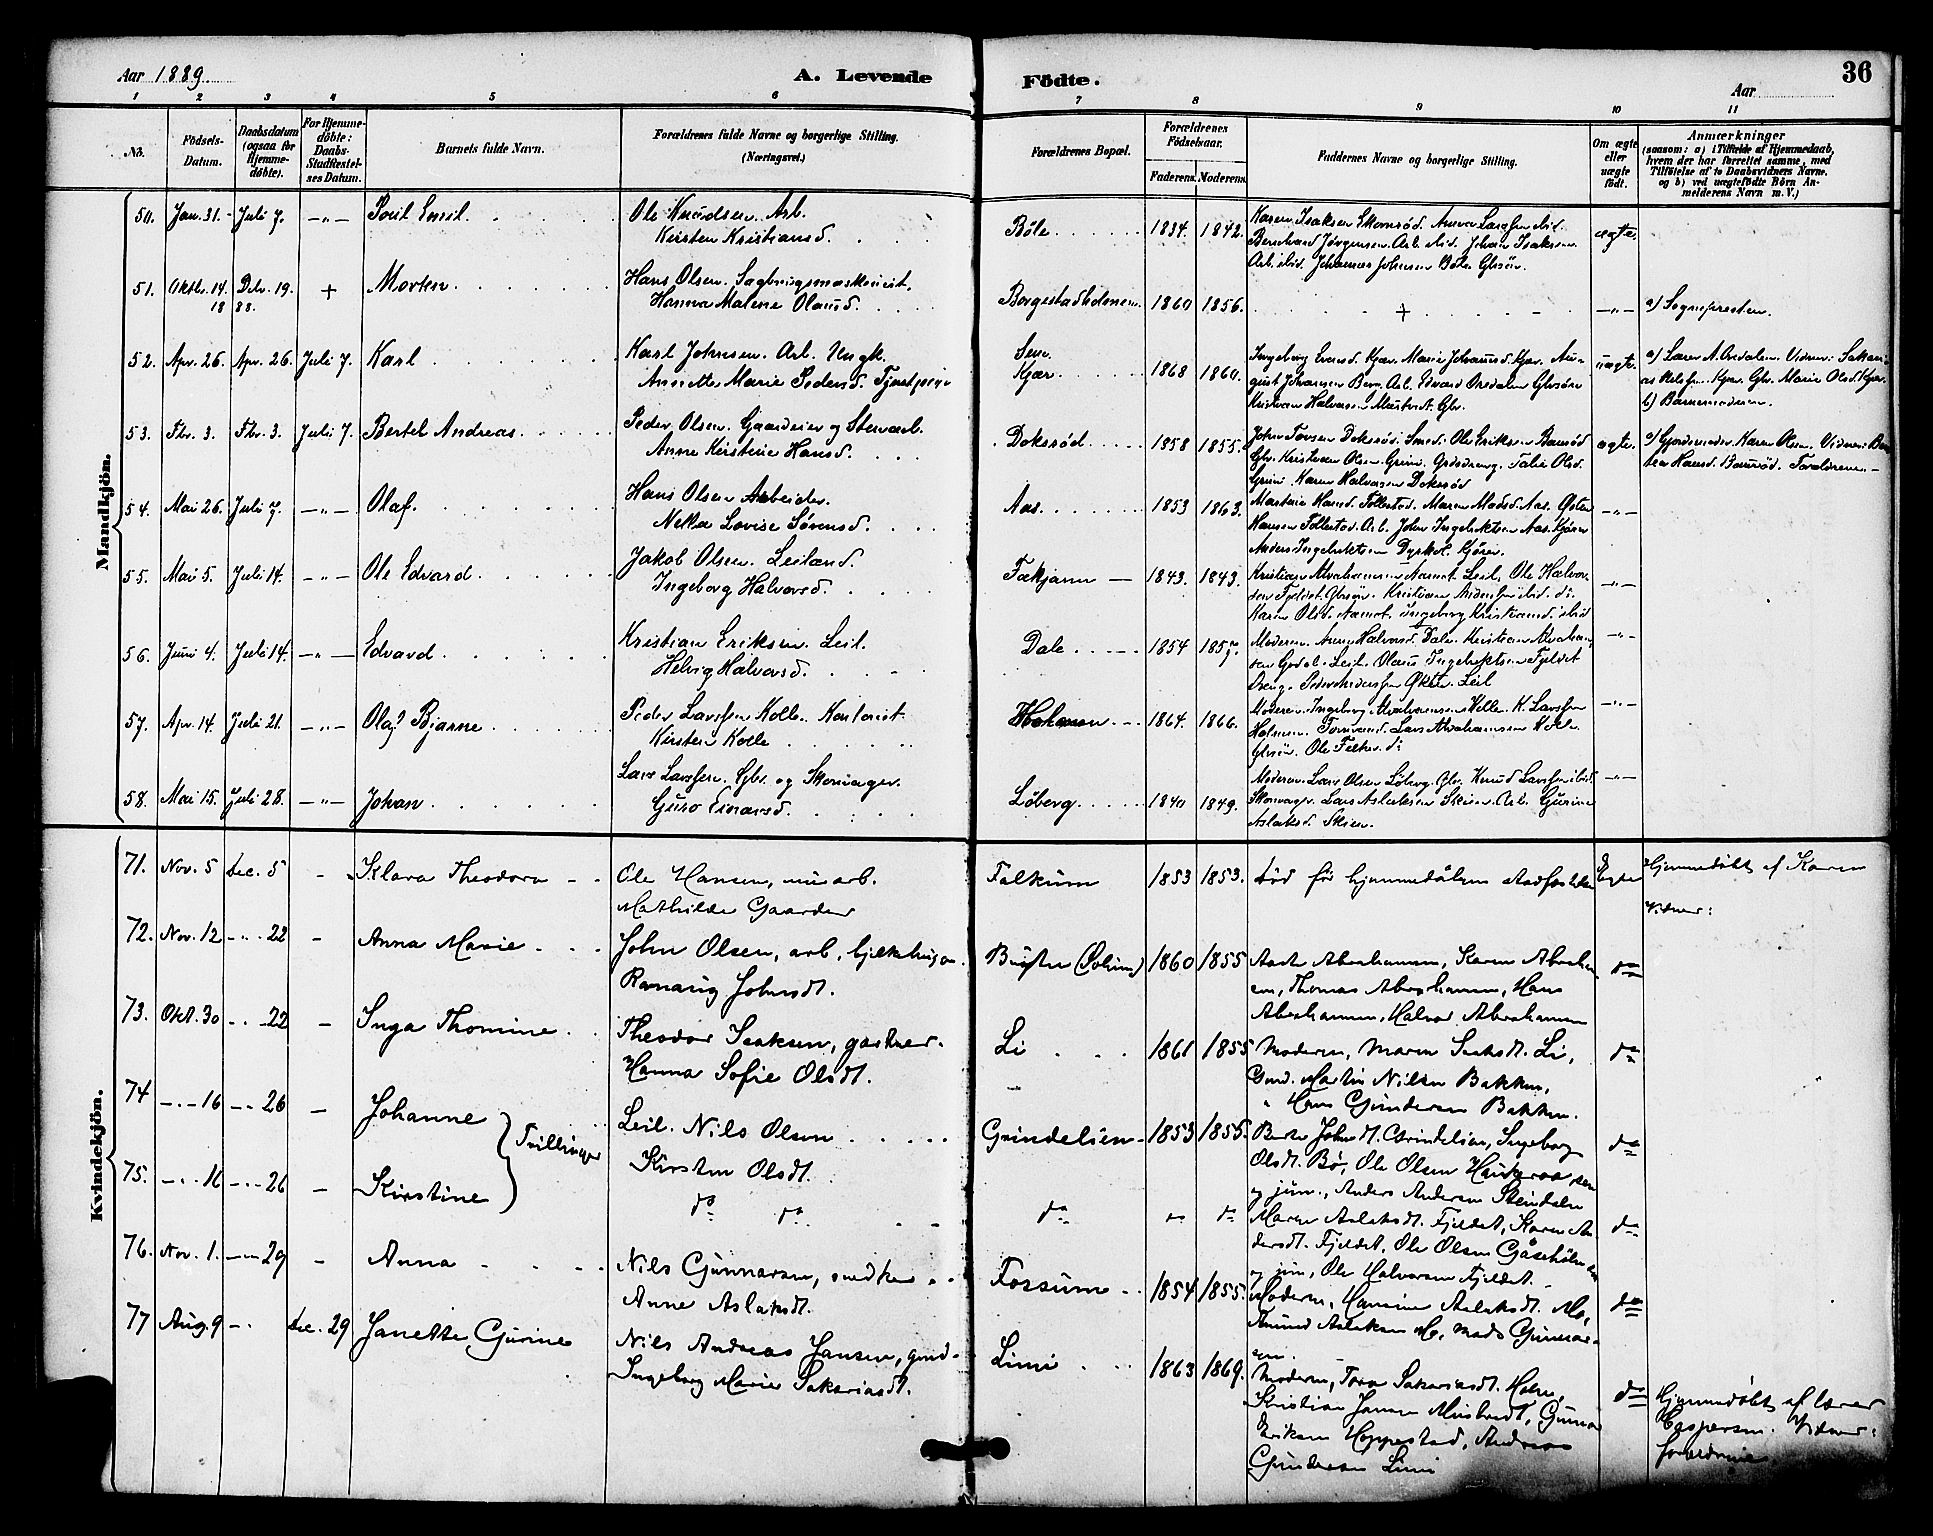 Aar 1889.
A. Levende
Födte.
Aar
36
1 2 3 4 5 6 7 8 9 10 11
No.
Födsels-
Datum.
Daabsdatum
(ogsaa for
Hjemme-
döbte).
For Hjemme-
döbte:
Daabs-
Stadfæstel-
ses Datum.
Barnets fulde Navn.
Forældrenes fulde Navne og borgerlige Stilling.
(Næringsvei.)
Forældrenes Bopæl.
Forældrenes
Födselsaar.
Faderens. Moderens.
Faddernes Navne og borgerlige Stilling.
Om ægte
eller
uægte
födt.
Anmærkninger
(saasom: a) i Tilfælde af Hjemmedaab,
hvem der har forrettet samme, med
Tilföielse af to Daabsvidners Navne.
og b) ved uægtefödte Börn An-
melderens Navn m. V.)
Mandkjön.
50. Jan. 31. Juli 7. -"- Poul Emil.
Ole Knudsen. Arb.
Kirsten Kristiansd.
Böle 1834. 1842.
Karen Isaksen Skomröd. Anna Larssen ibid.
Bernhard Jörgensen. Arb. ibid. Johan Isaksen
Arb. ibid. Johannes Johnsen Böle. Gbrsön.
ægte.
51. Oktbr. 14. Dcbr. 19. + Morten
18 88.
Hans Olsen. Sagbrugsmaskinist.
Hanna Malene Olausd.
Borgestadholmen 1860 1856. + -"- a) Sognepresten.
52. Apr. 26. Apr. 26. Juli 7. Karl
Karl Johnsen. Arb. Ungk.
Annette Marie Pedersd. Tjenestpige
Kjær. 1868 1860.
Ingeborg Eversd. Kjær. Marie Johansd. Kjær. Au-
gust Johansen Arb. Edvard Gbrsön
Kristian Halvorsen Gbr.
uægte.
a) Lærer A. Oredalen. Vidner: Sakari-
as Kjær. Gbr. Marie Olsd. Kjær.
b) Barnemoderen.
53. Fbr. 3. Fbr. 3. Juli 7. Bertel Andreas
Peder Olsen. Gaardeier og Stenarb.
Anne Kirstine Hansd.
Doksröd 1858 1855.
John Torsen Doksröd. Smed. Ole Eriksen Bauröd
Gbr. Kristian Olsen Grini. Grdsdreng. Talie Olsd.
Grini. Karen Halvorsen Doksröd
ægte.
a) Gjordemoder Karen Olsen. Vidner:
Hansd. Bauröd. Forældrene.
54. Mai 26. Juli 7. -"- Olaf.
Hans Olsen Arbeider.
Nella Lovise Sörensd.
Aas. 1853 1863.
Martine Hansd. Follestad. Maren Madsd. Aas. Östen
Hansen Follestad. Arb. John Ingebrektsen Aas. Kjörer
Anders Ingebrektsen Kjörer.
-"-
55. Mai 5. Juli 14. -"- Ole Edvard.
Jakob Olsen. Leilænd.
Ingeborg Halvorsd.
Fækjann 1843. 1843.
Kristian Abrahamsen Aamot. Leil. Ole Halvor-
sen Fjeldet. Gbrsön. Kristian Anderssen ibid. do
Karen Olsd. Aamot. Ingeborg Kristiansd. ibid
-"-
56. Juni 4. Juli 14. -"- Edvard
Kristian Eriksen. Leil.
Helvig Halvorsd.
Dale. 1854 1857
Moderen. Anne Halvorsd. Dale. Kristian Abraham-
sen Leil. Olaus Ingebrektsen Fjeldet
Dreng. Peder Anderssen Leil
-"-
57. Apr. 14 Juli 21. -"- Olaf Bjarne
Peder Larssen Kolle. Kontorist.
Kirsten Kolle
Holmen 1864. 1866.
Moderen. Ingeborg Abrahamsen Kolle. K. Larssen
Holmen. Tomvand. Lars Abrahamsen Kolle
Gbrsön. Ole Falkum. do
-"-
58. Mai 15. Juli 28. -"- Johan
Lars Larssen. Gbr. og Skomager.
Guro Einarsd.
Löberg. 1840 1849.
Moderen. Lars Olsen Löberg. Gbr. Knud Larssen ibid.
Skomager. Lars Aslaksen Skien. Arb. Gurine
Aslaksd. Skien.
-"-
Kvindekjön.
71. Nov. 5 Dec. 5 - Klara Theodora
Ole Hansen, murarb.
Mathilde Gaarder
Falkum 1853 1853.
död för hjemmedåben stadfæstedes
Egte
Hjemmedöbt af Karen
Vidner:
72. Nov. 12 -"- 22 - Anna Marie
John Olsen, arb.
Rannaug Johnsdt.
(Solum) 1860 1855
Aaste Abrahamsen, Karen Abraham-
sen, Thomas Abrahamsen, Hans
Abrahamsen, Halvor Abrahamsen
do
73. Okt. 30 -"- 22 - Inga Thomine
Theodor Isaksen, gartner.
Hanna Sofie Olsdt.
Li 1861 1855
Moderen, Maren Isaksdt. Li,
Gmd. Martin Nilsen Bakken,
" Hans Gundersen Bakken.
do
74 -"- 16 -"- 26 - Johanne
Leil. Nils Olsen
Kirsten Olsdt.
Tvillinger
Grindelien 1853 1855.
Berte Johnsdt. Grindelien, Ingeborg
Olsdt. Bö, Ole Olsen Haukeraa sen
og jun., Anders Andersen Steindalen
do
75. -"- 16 -"- 26 - Kirstine
do do do do do
Maren Aslaksdt. Fjeldet, Karen An-
dersdt. Fjeldet, Ole Olsen Gåsehölen sen
og jun, Ole Halvorsen Fjeldet.
do
76. Nov. 1. -"- 29 - Anna
Nils Gunnarsen, snedker
Anne Aslaksdt.
Fossum 1854 1855.
Moderen, Hansine Aslaksdt. Mo,
Amund Aslaksen Mo, Mads Gunnar-
sen.
do
77 Aug. 9 - Dec. 29 Janette Gurine
Nils Andreas Jansen, gmd
Ingeborg Marie Sakariasdt.
Limi 1863 1869.
Moderen, Tora Sakariasdt. Holm,
Kristian Jansen Gunnar
Eriksen Hoppestad, Andreas
Gundersen Limi
do
Hjemmedöbt af lærer
Espersen. Vidner:
forældrene.